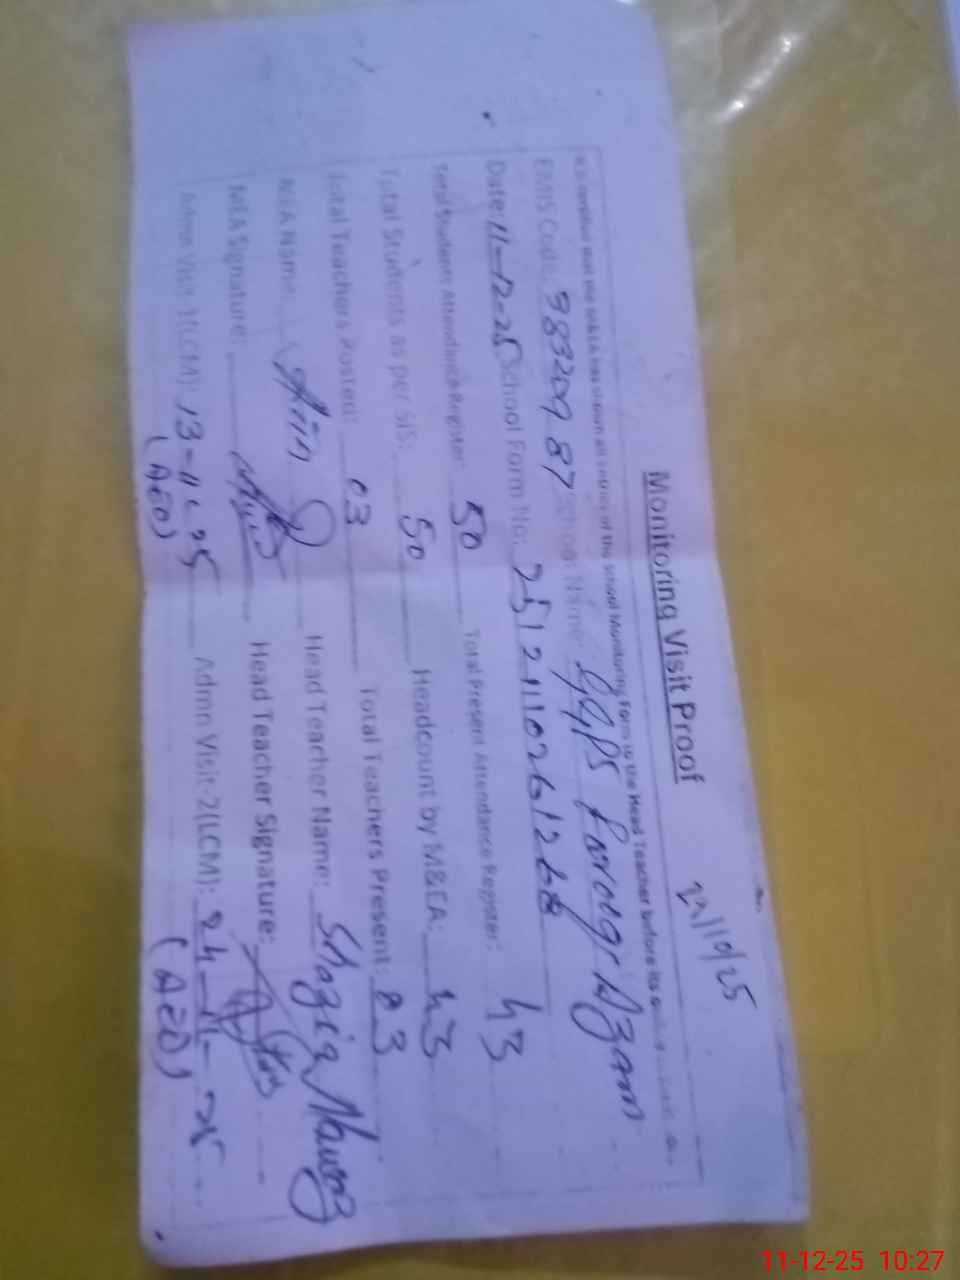 Monitoring Visit Proof
22/10/25
that the M&EA has shown all entries of the school Monitoring Form to the Head Teacher before its
EMIS Code: 38320987 School Name: GGPS Farouq-i-Azam
Date: 11-12-25 School Form No: 2512111026126
Total Students Attendance Register: 50 Total Present Attendance Register: 43
Total Students as per SIS: 50 Headcount by M&EA: 43
Total Teachers Posted: 03 Total Teachers Present: 03
M&EA Name: Head Teacher Name: Shazia Nawaz
M&EA Signature: Head Teacher Signature:
Admn Visit-1(LCM): 13-11-25 Admn Visit-2(LCM): 24-11-25
(AEO) (AEO)
11-12-25 10:27